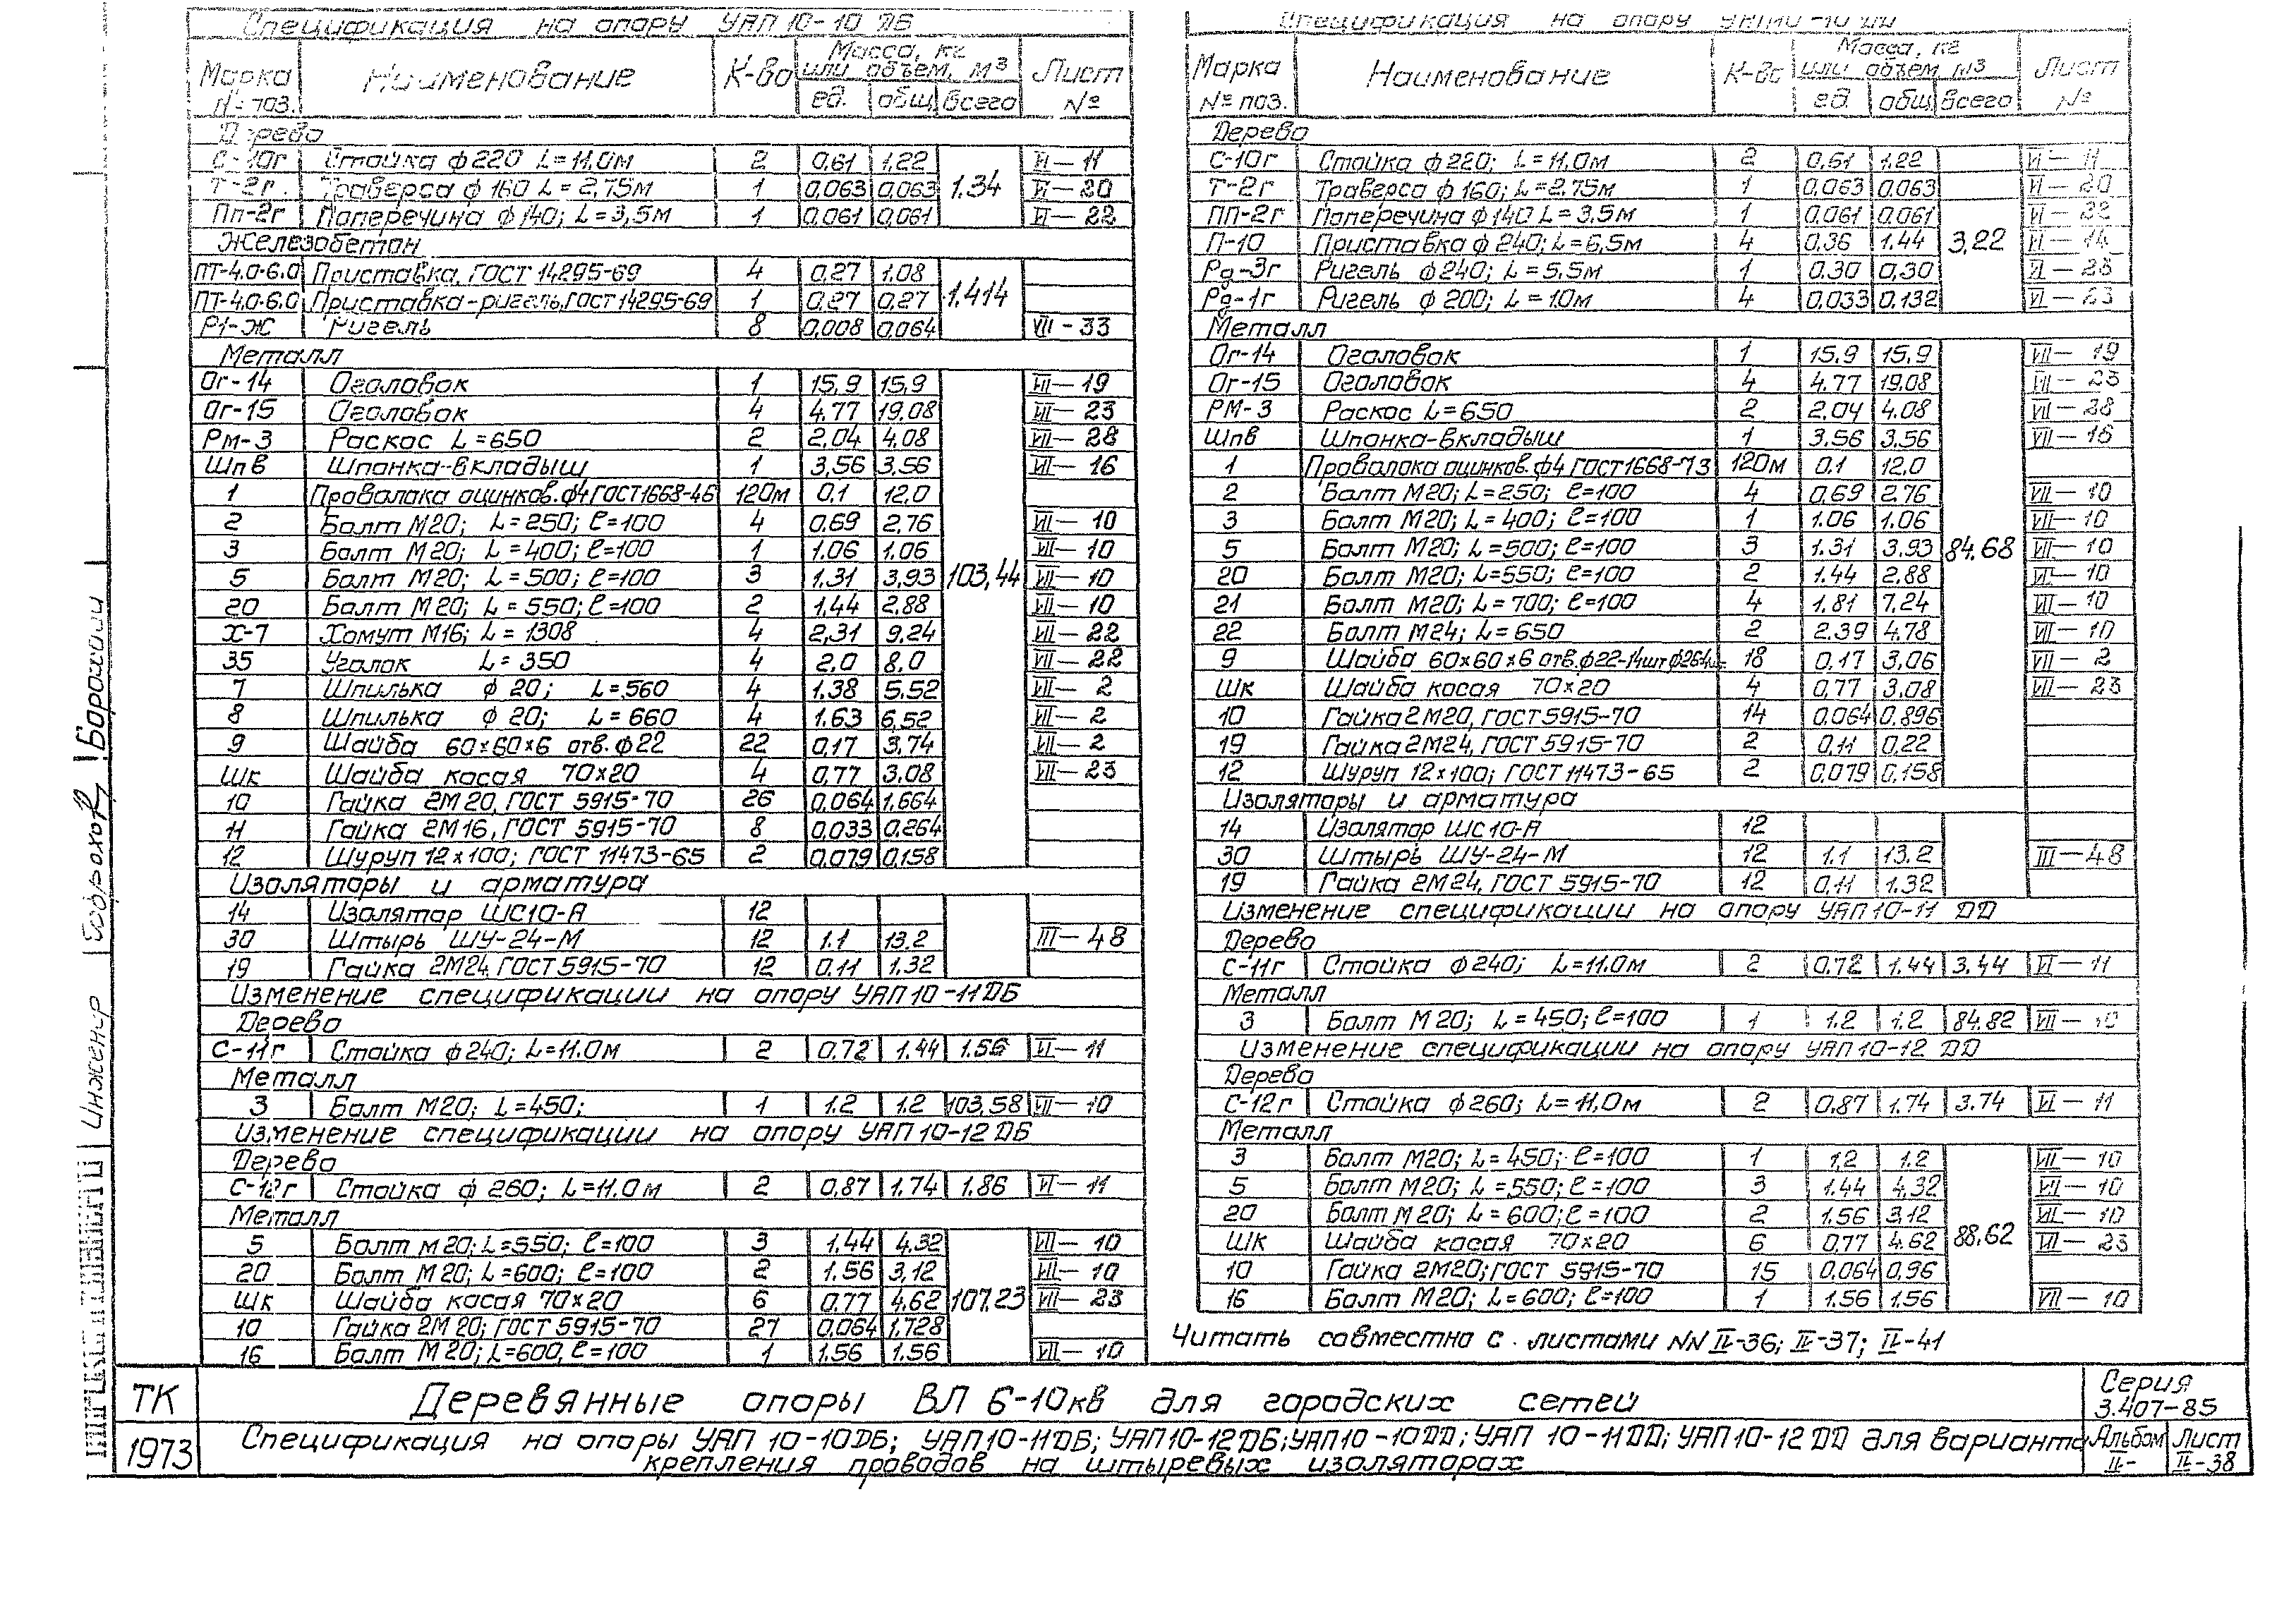 Спецификация на опору УАП 10-10 ДБ
Марка № поз. Наименование К-во Масса, кг или объем, м³ ед. общ. всего Лист №
Дерево
С-10г Стойка ф220 L=11.0м 2 0,61 1.22 1.34 VI-11
Т-2г. Траверса ф160 L=2,75м 1 0,063 0,063 VI-20
Пп-2г Поперечина ф140; L=3,5м 1 0,061 0,061 VI-22
Железобетон
ПТ-4.0-6.0 Приставка, ГОСТ 14295-69 4 0,27 1.08 1.414
ПТ-4.0-6.0 Приставка-ригель, ГОСТ 14295-69 1 0,27 0,27
Р1-Ж Ригель 8 0,008 0,064 VII-33
Металл
Ог-14 Оголовок 1 15,9 15,9 VII-19
Ог-15 Оголовок 4 4,77 19,08 VII-23
Рм-3 Раскос L=650 2 2,04 4.08 VII-28
Шпв Шпонка-вкладыш 1 3,56 3.56 VII-16
1 Проволока оцинков. ф4 ГОСТ 1668-46 120м 0,1 12,0
2 Болт М20; L=250; ℓ=100 4 0,69 2,76 VII-10
3 Болт М20; L=400; ℓ=100 1 1.06 1.06 VII-10
5 Болт М20; L=500; ℓ=100 3 1.31 3,93 103,44 VII-10
20 Болт М20; L=550; ℓ=100 2 1,44 2,88 VII-10
Х-7 Хомут М16; L=1308 4 2,31 9.24 VII-22
35 Уголок L=350 4 2.0 8.0 VII-22
7 Шпилька ф20; L=560 4 1.38 5.52 VII-2
8 Шпилька ф20; L=660 4 1.63 6,52 VII-2
9 Шайба 60×60×6 отв. ф22 22 0,17 3,74 VII-2
ШК Шайба косая 70×20 4 0,77 3.08 VII-23
10 Гайка 2М20, ГОСТ 5915-70 26 0,064 1,664
11 Гайка 2М16, ГОСТ 5915-70 8 0,033 0,264
12 Шуруп 12×100; ГОСТ 11473-65 2 0,079 0,158
Изоляторы и арматура
14 Изолятор ШС10-А 12
30 Штырь ШУ-24-М 12 1.1 13.2 III-48
19 Гайка 2М24, ГОСТ 5915-70 12 0.11 1.32
Изменение спецификации на опору УАП 10-11ДБ
Дерево
С-11г Стойка ф240; L=11.0м 2 0.72 1.44 1.56 VI-11
Металл
3 Болт М20; L=450; 1 1.2 1.2 103,58 VII-10
Изменение спецификации на опору УАП 10-12ДБ
Дерево
С-12г Стойка ф260; L=11.0м 2 0,87 1.74 1.86 VI-11
Металл
5 Болт М20; L=550; ℓ=100 3 1.44 4,32 VII-10
20 Болт М20; L=600; ℓ=100 2 1.56 3,12 VII-10
ШК Шайба косая 70×20 6 0,77 4,62 107.23 VII-23
10 Гайка 2М20; ГОСТ 5915-70 27 0,064 1,728
16 Болт М20; L=600, ℓ=100 1 1.56 1.56 VII-10
Спецификация на опору УАП10-10 ДД
Марка № поз. Наименование К-во Масса, кг или объем, м³ ед. общ. всего Лист №
Дерево
С-10г Стойка ф220; L=11.0м 2 0,61 1.22 VI-11
Т-2г Траверса ф160; L=2.75м 1 0,063 0,063 VI-20
ПП-2г Поперечина ф140 L=3.5м 1 0,061 0,061 VI-22
П-10 Приставка ф240; L=6,5м 4 0,36 1.44 3,22 VI-14
Рд-3г Ригель ф240; L=5,5м 1 0.30 0,30 VI-23
Рд-1г Ригель ф200; L=1.0м 4 0,033 0,132 VI-23
Металл
Ог-14 Оголовок 1 15.9 15,9 VII-19
Ог-15 Оголовок 4 4.77 19.08 VII-23
РМ-3 Раскос L=650 2 2.04 4.08 VII-28
Шпв Шпонка-вкладыш 1 3.56 3.56 VII-16
1 Проволока оцинков. ф4 ГОСТ 1668-73 120м 0.1 12.0
2 Болт М20; L=250; ℓ=100 4 0,69 2,76 VII-10
3 Болт М20; L=400; ℓ=100 1 1.06 1.06 VII-10
5 Болт М20; L=500; ℓ=100 3 1.31 3.93 84.68 VII-10
20 Болт М20; L=550; ℓ=100 2 1.44 2.88 VII-10
21 Болт М20; L=700; ℓ=100 4 1.81 7,24 VII-10
22 Болт М24; L=650 2 2.39 4.78 VII-10
9 Шайба 60×60×6 отв. ф22-14шт ф26 4шт 18 0,17 3,06 VII-2
ШК Шайба косая 70×20 4 0,77 3.08 VII-23
10 Гайка 2М20, ГОСТ 5915-70 14 0.064 0.896
19 Гайка 2М24, ГОСТ 5915-70 2 0,11 0,22
12 Шуруп 12×100; ГОСТ 11473-65 2 0,079 0,158
Изоляторы и арматура
14 Изолятор ШС10-А 12
30 Штырь ШУ-24-М 12 1.1 13.2 III-48
19 Гайка 2М24, ГОСТ 5915-70 12 0,11 1.32
Изменение спецификации на опору УАП 10-11 ДД
Дерево
С-11г Стойка ф240; L=11.0м 2 0.72 1.44 3.44 VI-11
Металл
3 Болт М20; L=450; ℓ=100 1 1.2 1.2 84.82 VII-10
Изменение спецификации на опору УАП 10-12 ДД
Дерево
С-12г Стойка ф260; L=11,0м 2 0,87 1,74 3.74 VI-11
Металл
3 Болт М20; L=450; ℓ=100 1 1,2 1.2 VII-10
5 Болт М20; L=550; ℓ=100 3 1.44 4,32 VII-10
20 Болт М20; L=600; ℓ=100 2 1.56 3,12 VII-10
ШК Шайба косая 70×20 6 0,77 4.62 88.62 VII-23
10 Гайка 2М20; ГОСТ 5915-70 15 0,064 0,96
16 Болт М20; L=600; ℓ=100 1 1.56 1.56 VII-10
Читать совместно с листами NN II-36; II-37; II-41
Инженер
ТК Деревянные опоры ВЛ 6-10кв для городских сетей Серия 3.407-85
1973 Спецификация на опоры УАП 10-10ДБ; УАП10-11ДБ; УАП10-12ДБ; УАП10-10ДД; УАП 10-11ДД; УАП10-12ДД для варианта крепления проводов на штыревых изоляторах Альбом II- Лист II-38